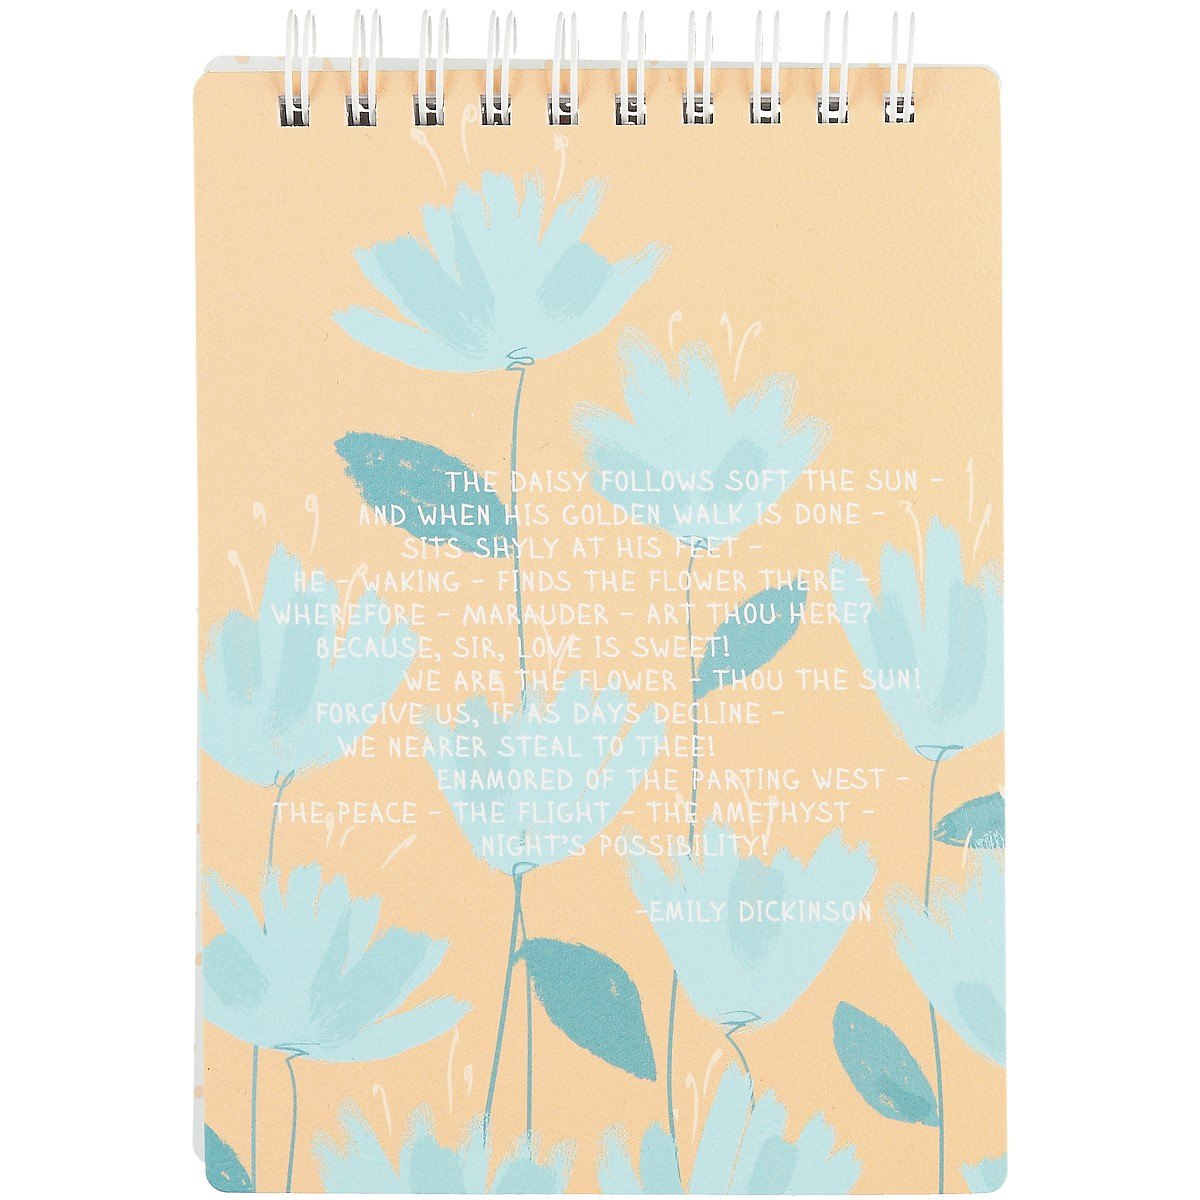 THE DAISY FOLLOWS SOFT THE SUN -
AND WHEN HIS GOLDEN WALK IS DONE -
SITS SHYLY AT HIS FEET -
HE - WAKING - FINDS THE FLOWER THERE -
WHEREFORE - MARAUDER - ART THOU HERE?
BECAUSE, SIR, LOVE IS SWEET!
WE ARE THE FLOWER - THOU THE SUN!
FORGIVE US, IF AS DAYS DECLINE -
WE NEARER STEAL TO THEE!
ENAMORED OF THE PARTING WEST -
THE PEACE - THE FLIGHT - THE AMETHYST -
NIGHT'S POSSIBILITY!
-EMILY DICKINSON